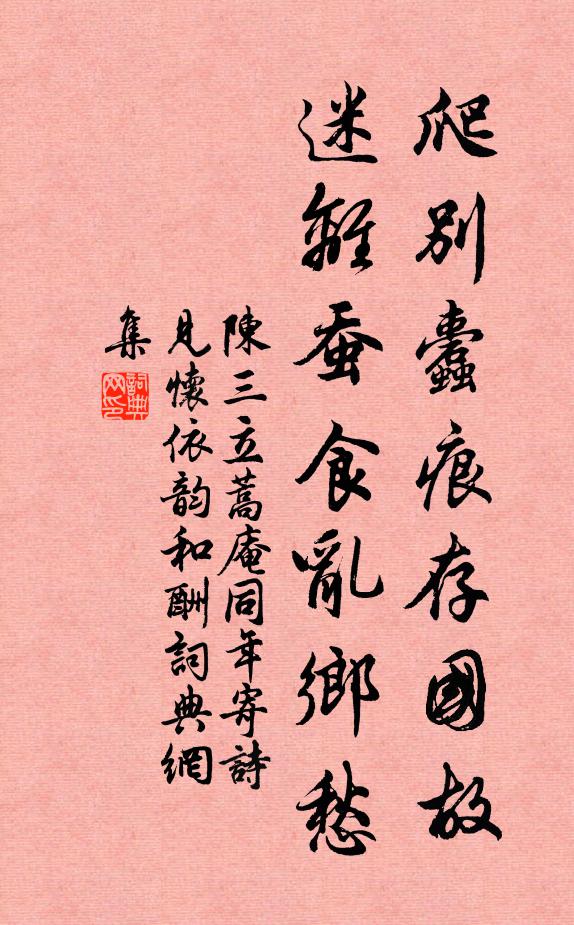 爬別蠹痕存國故
迷離蚕食亂鄉愁
陳三立蒿庵同年寄詩
見懷依韵和酬詞典網
集
詞典網印